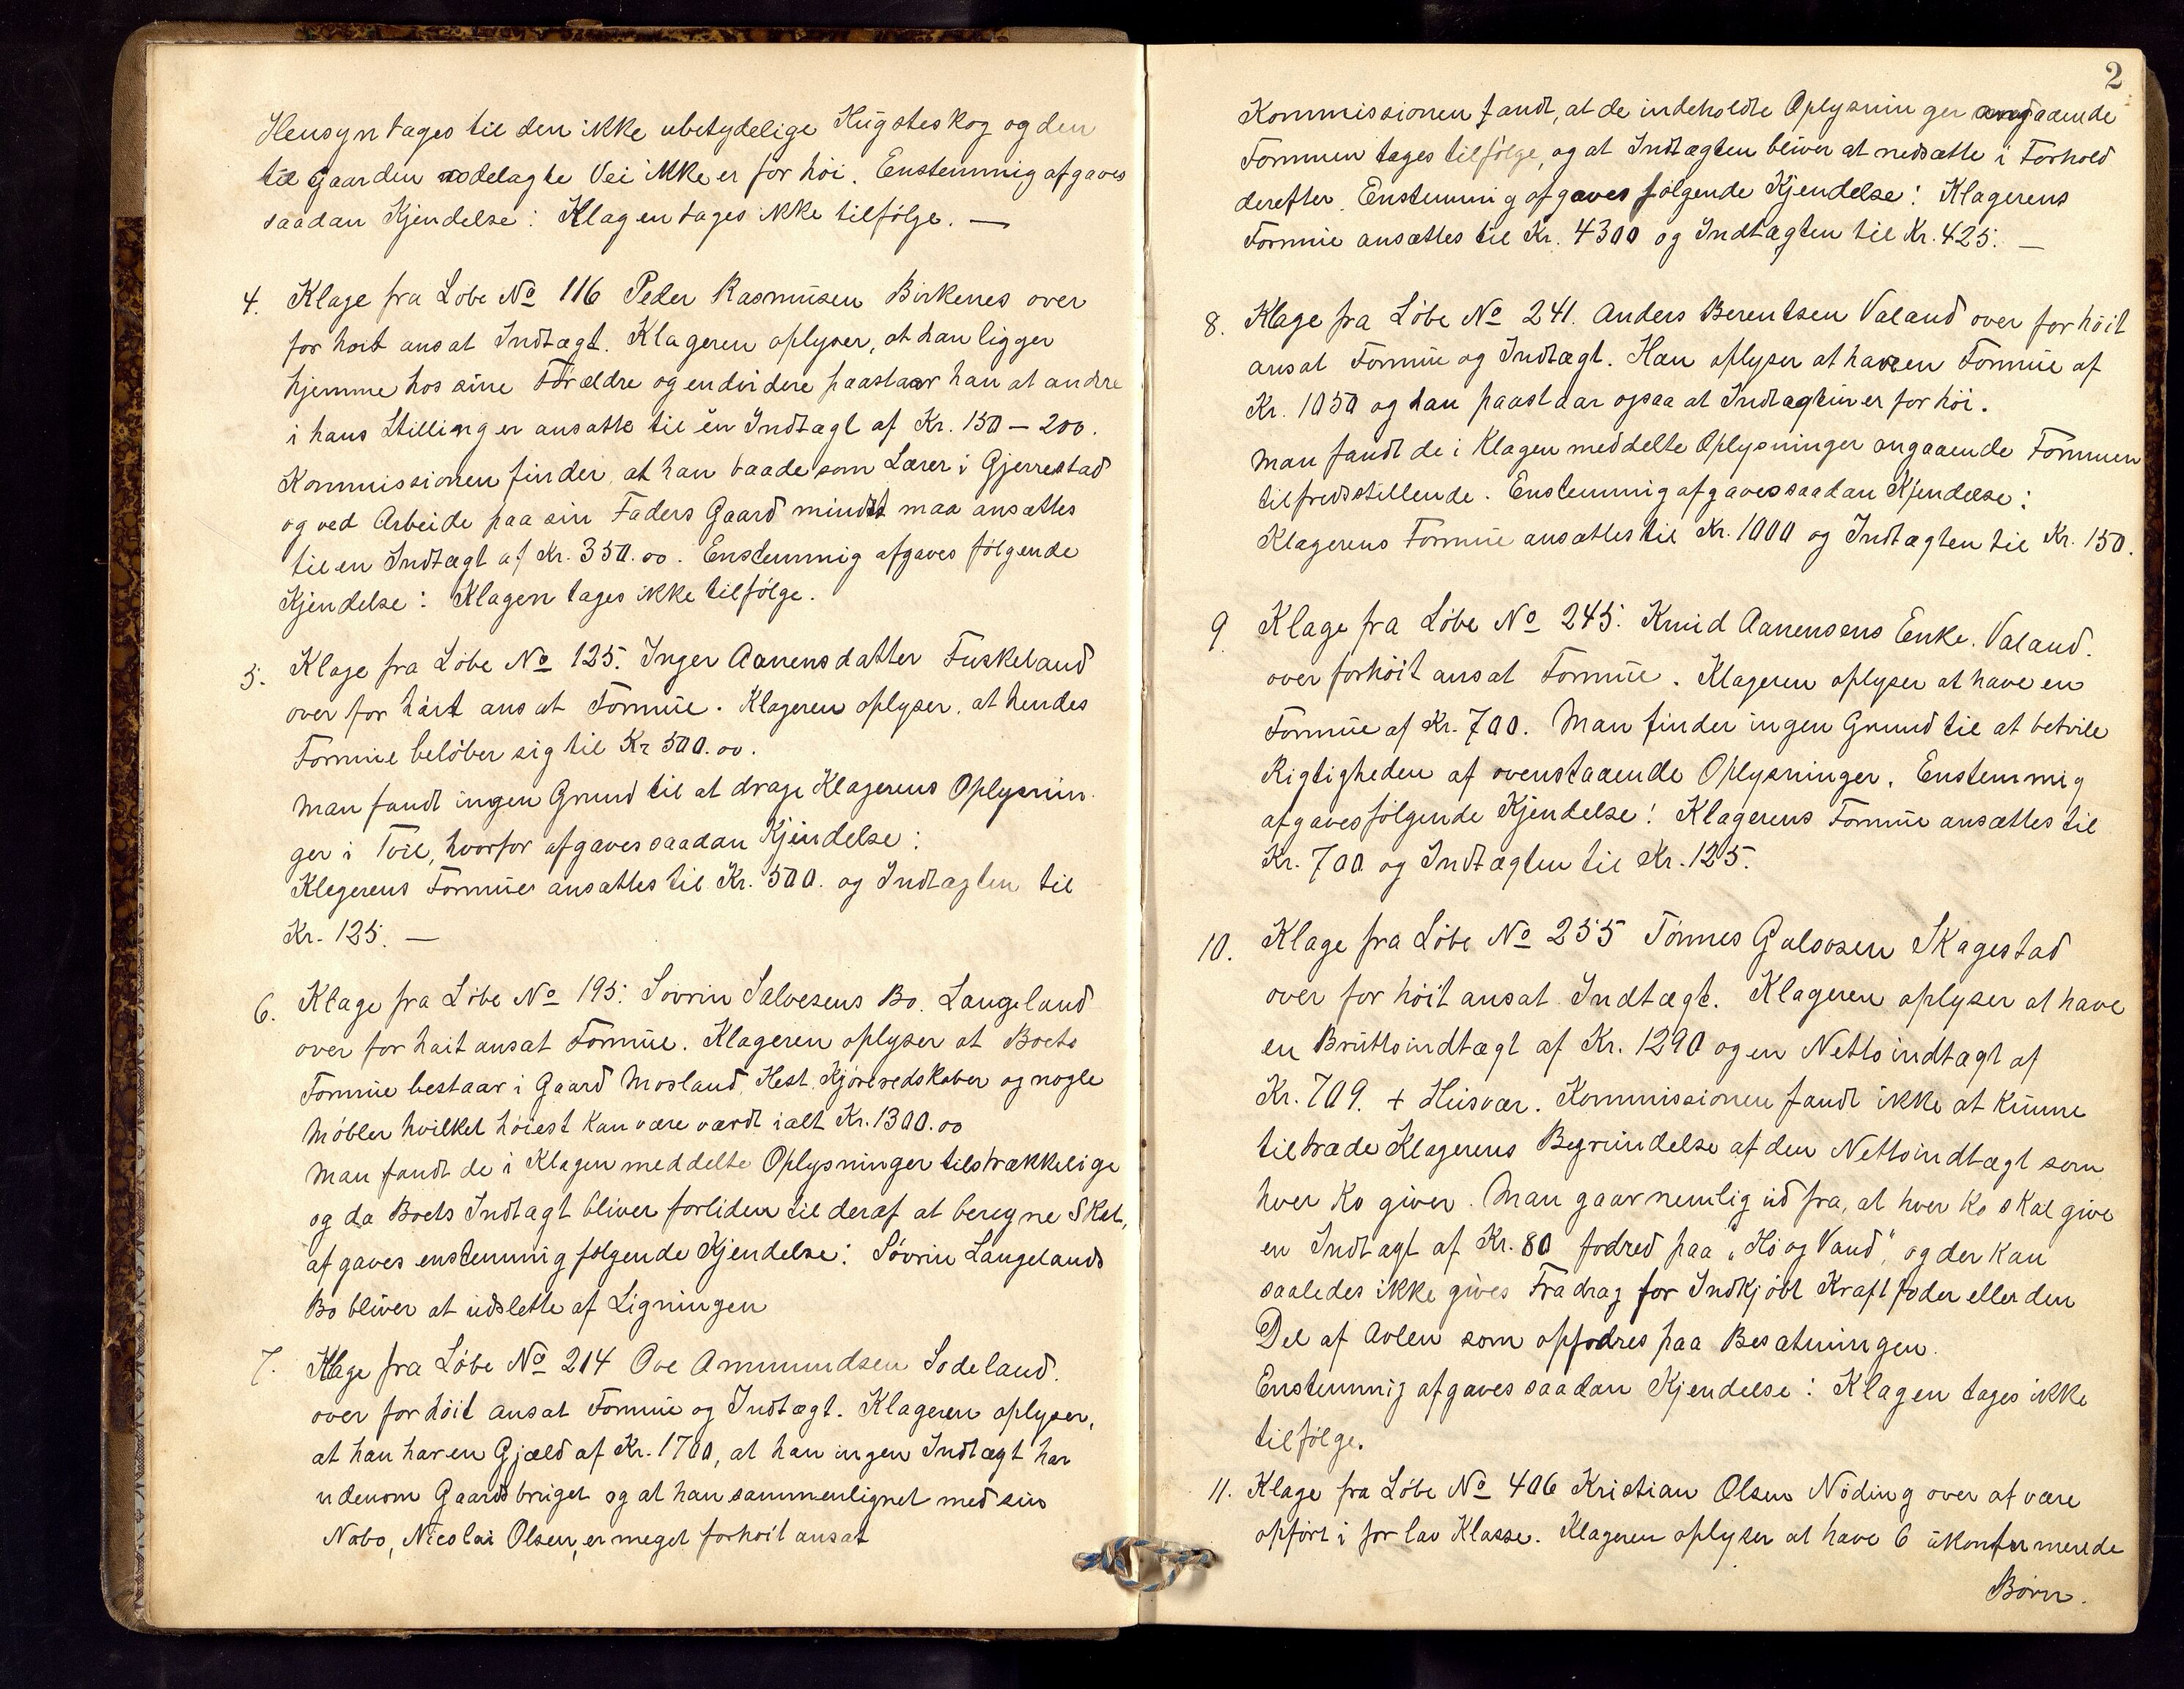 Hensyn tages til den ikke ubetydelige Hugsteskog og den
til Gaarden nodelagte Vei ikke er for höi. Enstemmig afgaves
saadan Kjendelse: Klagen tages ikke tilfölge. —
4. Klage fra Löbe No 116 Peder Rasmusen Birkenes over
for hoit ansat Indtægt. Klageren oplyser, at han ligger
hjemme hos sine Forældre og endvidere paastaar han at andre
i hans Stilling er ansatte til en Indtægt af Kr. 150 – 200.
Kommissionen finder, at han baade som Lærer i Gjerrestad
og ved Arbeide paa sin Faders Gaard mindst maa ansættes
til en Indtægt af Kr. 350.00. Enstemmig afgaves fölgende
Kjendelse: Klagen tages ikke tilfölge.
5. Klage fra Löbe No 125. Inger Aanensdatter Fuskeland
over for höit ansat Formue. Klageren oplyser, at hendes
Formue belöber sig til Kr 500.00.
Man fandt ingen Grund til at drage Klagerens Oplysnin-
ger i Tvil, hvorfor afgaves saadan Kjendelse:
Klegerens Formue ansættes til Kr. 500. og Indtægten til
Kr. 125. —
6. Klage fra Löbe No 195. Sövrin Salvesens Bo. Langeland
over for höit ansat Formue. Klageren oplyser at Boets
Formue bestaar i Gaard Mosland, Hest, Kjöreredskaber og nogle
Möbler hvilket höiest kan være værdt ialt Kr. 1300.00
Man fandt de i Klagen meddelte Oplysninger tilstrækkelige
og da Boets Indtægt bliver for liden til deraf at beregne Skat,
afgaves enstemmig fölgende Kjendelse: Sövrin Langelands
Bo bliver at udslette af Ligningen
7. Klage fra Löbe No 214 Ove Ammundsen Sodeland.
over for höit ansat Formue og Indtægt. Klageren oplyser,
at han har en Gjæld af Kr. 1700, at han ingen Indtægt har
udenom Gaardsbruget og at han sammenlignet med sin
Nabo, Nicolai Olsen, er meget for hoit ansat
2
Kommissionen fandt, at de indeholdte Oplysninger angaaende
Formuen tages tilfölge, og at Indtægten bliver at nedsætte i Forhold
derefter. Enstemmig afgaves fölgende Kjendelse: Klagerens
Formue ansættes til Kr. 4300 og Indtægten til Kr. 425. —
8. Klage fra Löbe No 241. Anders Berentsen Valand over for höit
ansat Formue og Indtægt. Han oplyser at have en Formue af
Kr. 1050 og han paastaar ogsaa at Indtægten er for höi.
Man fandt de i Klagen meddelte Oplysninger angaaende Formuen
tilfredsstillende. Enstemmig afgaves saadan Kjendelse:
Klagerens Formue ansættes til Kr. 1000 og Indtægten til Kr. 150.
9. Klage fra Löbe No 245. Knud Aanensens Enke. Valand.
over for höit ansat Formue. Klageren oplyser at have en
Formue af Kr. 700. Man finder ingen Grund til at betvile
Rigtigheden af ovenstaaende Oplysninger. Enstemmig
afgaves fölgende Kjendelse! Klagerens Formue ansættes til
Kr. 700 og Indtægten til Kr. 125.
10. Klage fra Löbe No 255 Tönnes Gulovsen Skagestad
over for höit ansat Indtægt. Klageren oplyser at have
en Bruttoindtægt af Kr. 1290 og en Nettoindtægt af
Kr. 709. + Husvær. Kommissionen fandt ikke at kunne
tiltræde Klagerens Begrundelse af den Nettoindtægt som
hver Ko giver. Man gaar nemlig ud fra, at hver Ko skal give
en Indtægt af Kr. 80 fodred paa "Hö og Vand", og der kan
saaledes ikke gives Fradrag for Indkjöbt Kraftfoder eller den
Del af Avlen som opfodres paa Besætningen.
Enstemmig afgaves saadan Kjendelse: Klagen tages ikke
tilfölge.
11. Klage fra Löbe No 406 Kristian Olsen Nöding over at være
opfört i for lav Klasse. Klageren oplyser at have 6 ukonfirmerede
Börn.